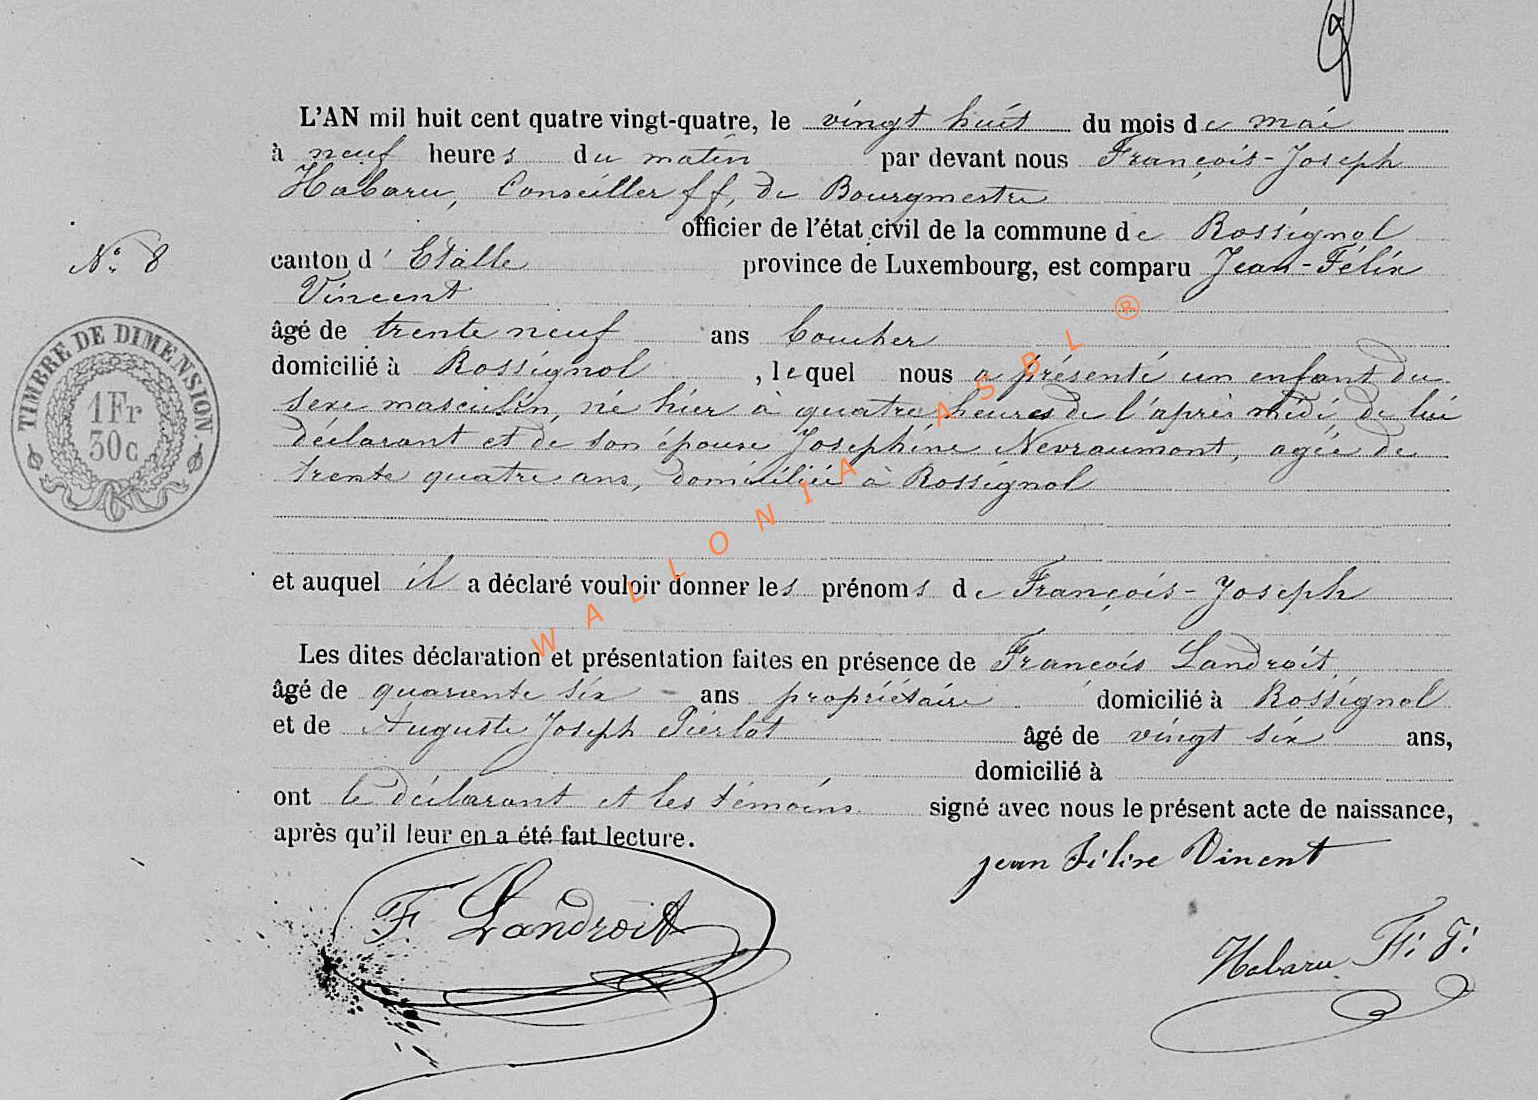 L'AN mil huit cent quatre vingt-quatre, le vingt huit du mois de mai
à neuf heures du matin par devant nous François-Joseph
Habaru, Conseiller ff, de Bourgmestre
officier de l'état civil de la commune de Rossignol
N° 8
canton d'Etalle province de Luxembourg, est comparu Jean-Félix
Vincent
âgé de trente neuf ans
domicilié à Rossignol, lequel nous a présenté un enfant du
sexe masculin, né hier à quatre heures de l'après midi de lui
déclarant et de son épouse Joséphine Nevraumont, agée de
trente quatre ans, domiciliée à Rossignol
TIMBRE DE DIMENSION.
1Fr
30c
et auquel il a déclaré vouloir donner les prénoms de François-Joseph
Les dites déclaration et présentation faites en présence de François Landroit,
âgé de quarente six ans propriétaire domicilié à Rossignol
et de Auguste Joseph Pierlot âgé de vingt six ans,
domicilié à
ont le déclarant et les témoins signé avec nous le présent acte de naissance,
après qu'il leur en a été fait lecture.
jean Félixe Vincent
F. Landroit
Habaru F. J.
WALLONIA ASBL ®